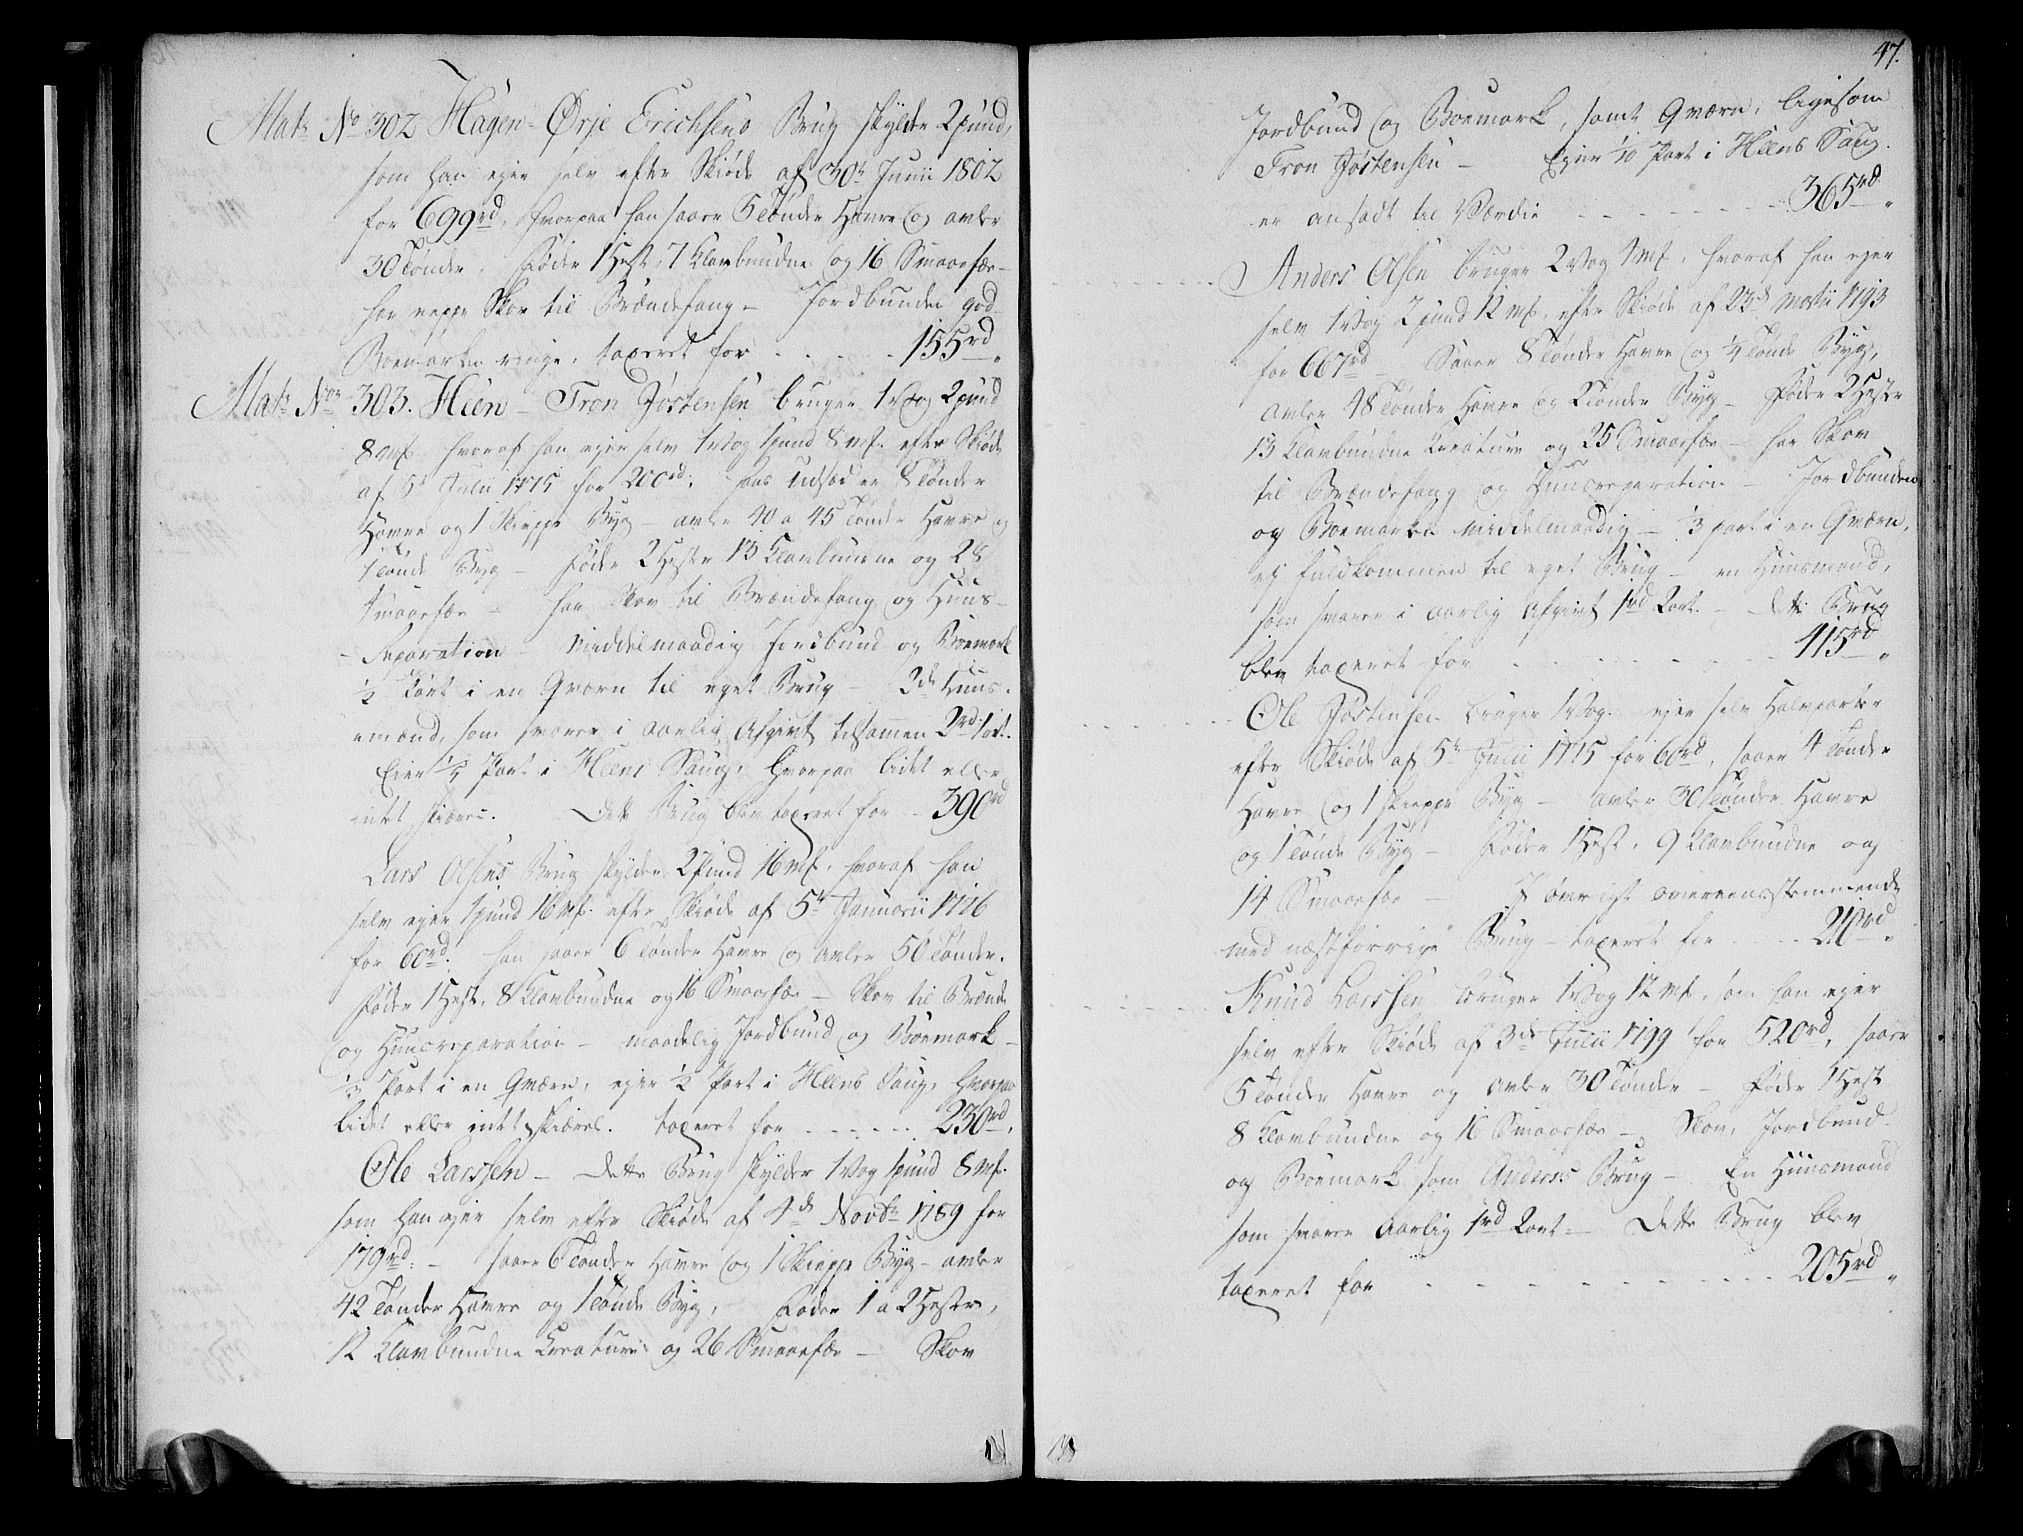 Matr No 302 Hagen - Ørje Erichsens Brug skylder 2 pund,
som han ejer selv efter Skiøde af 30te Junii 1802
for 699rd, hvorpaa han saaer 5 Tønder Havre og avler
30 Tønder, Føder 1 Hest, 7 Klavbundne og 16 Smaaefæe -
har neppe Skov til Brændefang - Jordbunden god
Boemarken ringe, taxeret for - - - - 155rd "
Matr Nor 303. Hien - Tron Jøstensen bruger 1 Vog 2 pund
8 mk, hvoraf han ejer selv 1 Vog 1 pund 8 mk. efter Skiøde
af 5te Julii 1775 for 200rd; hans Udsæd er 8 Tønder
Havre og 1 Skieppe Byg - avler 40 a 45 Tønder Havre og
1 Tønde Byg - Føder 2 Heste 13 Klavbundne og 28
Smaaefæe - har Skov til Brændefang og Huus-
- Reparation - Middelmaadig Jordbund og Boemark
1/2 Part i en Qværn til eget Brug - 2de Huus-
emænd, som svarer i aarlig Afgivt tilsammen 2rd 1 ort.
Eier 1/5 Part i Hiens Saug, hvorpaa lidet eller
intet skiæres. Dette Brug blev taxeret for - 390rd
Lars Olsens Brug skylder 2 Pund 16 mk, hvoraf han
selv ejer 1 pund 16 mk. efter Skiøde af 5te Januarii 1776
for 60rd; han saaer 6 Tønder Havre og avler 50 Tønder.
Føder 1 Hest, 8 Klavbundne og 16 Smaaefæe - Skov til Brænde
og Huusreparation - maadelig Jordbund og Boemark -
1/3 Part i en Qværn, ejer 1/2 Part i Hiens Saug, hvorpaa
lidet eller intet skiæres. taxeret for - - - - - - 230rd.
Ole Larssen - Dette Brug skylder 1 Vog 1 pund 8 mk.
som han ejer selv efter Skiøde af 4de Novbr 1789 for
179rd: - saaer 6 Tønder Havre og 1 Skieppe Byg - avler
42 Tønder Havre og 1 Tønde Byg, Føder 1 a 2 Heste,
12 Klavbundne Creature og 26 Smaaefæe - Skov
47.
Jordbund og Boemark, samt Qværn, ligesom
Tron Jøstensen - Ejer 1/10 Part i Hiens Saug.
er ansadt til Værdie - - - - - - - - 365rd "
Anders Olsen bruger 2 Vog 4 mk, hvoraf han ejer
selv 1 Vog 2 pund 12 mk, efter Skiøde af 23de Martii 1793
for 667rd - Saaer 8 Tønder Havre og 1/4 Tønde Byg,
avler 48 Tønder Havre og 2 Tønder Byg - Føder 2 Heste
13 Klavbundne Creature og 25 Smaaefæe - har Skov
til Brændefang og Huusreparation - Jordbunden
og Boemarken middelmaadig - 1/3 part i en Qværn,
ej fuldkommen til eget Brug - en Huusmand,
som svarer i aarlig Afgivt 1rd 2 ort. - Dette Brug
blev taxeret for - - - - - - - - - 415rd "
Ole Jøstensen bruger 1 Vog. ejer selv Halvparten
efter Skiøde af 5te Julii 1775 for 60rd, saaer 4 Tønder
Havre og 1 skieppe Byg - avler 30 Tønder Havre
og 1 Tønde Byg - Føder 1 Hest, 9 Klavbundne og
14 Smaaefæe - I øvrigt overeensstemmende
med næstforrige Brug - taxeret for - - - - 210rd "
Knud Larssen bruger 1 Vog 12 mk, som han ejer
selv efter Skiøde af 3de Julii 1799 for 520rd, saaer
5 Tønder Havre og avler 30 Tønder - Føder 1 Hest
8 Klavbundne og 16 Smaaefæe - Skov, Jordbund
og Boemark som Anderses Brug - En Huusmand
som svarer aarlig 1rd 2 ort - Dette Brug blev
taxeret for - - - - - - - - - - - - 205rd "